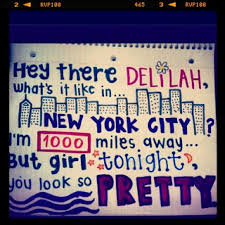 2 RVP100 465 3 RVP100
Hey there DELILAH,
what's it like in...
NEW YORK CITY?
I'm 1000 miles away...
But girl tonight,
you look so PRETTY